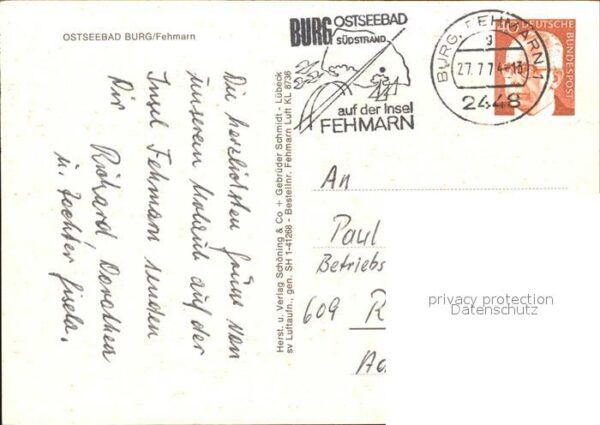 OSTSEEBAD BURG/Fehmarn
Die herzlichsten Grüße von
unserem Urlaub auf der
Insel Fehmarn senden
Dir
Richard Dorothea
u. Tochter Gisela.
Herst. u. Verlag Schöning & Co + Gebrüder Schmidt - Lübeck
sv Luftaufn., gen. SH 1-41268 - Bestellnr. Fehmarn Luft KL 8736
BURG OSTSEEBAD
SÜDSTRAND
auf der Insel
FEHMARN
BURG, FEHMARN 1
g
27.7.74-18
2448
40 DEUTSCHE
BUNDESPOST
An
Paul
Betriebs
609 R
privacy protection
Datenschutz